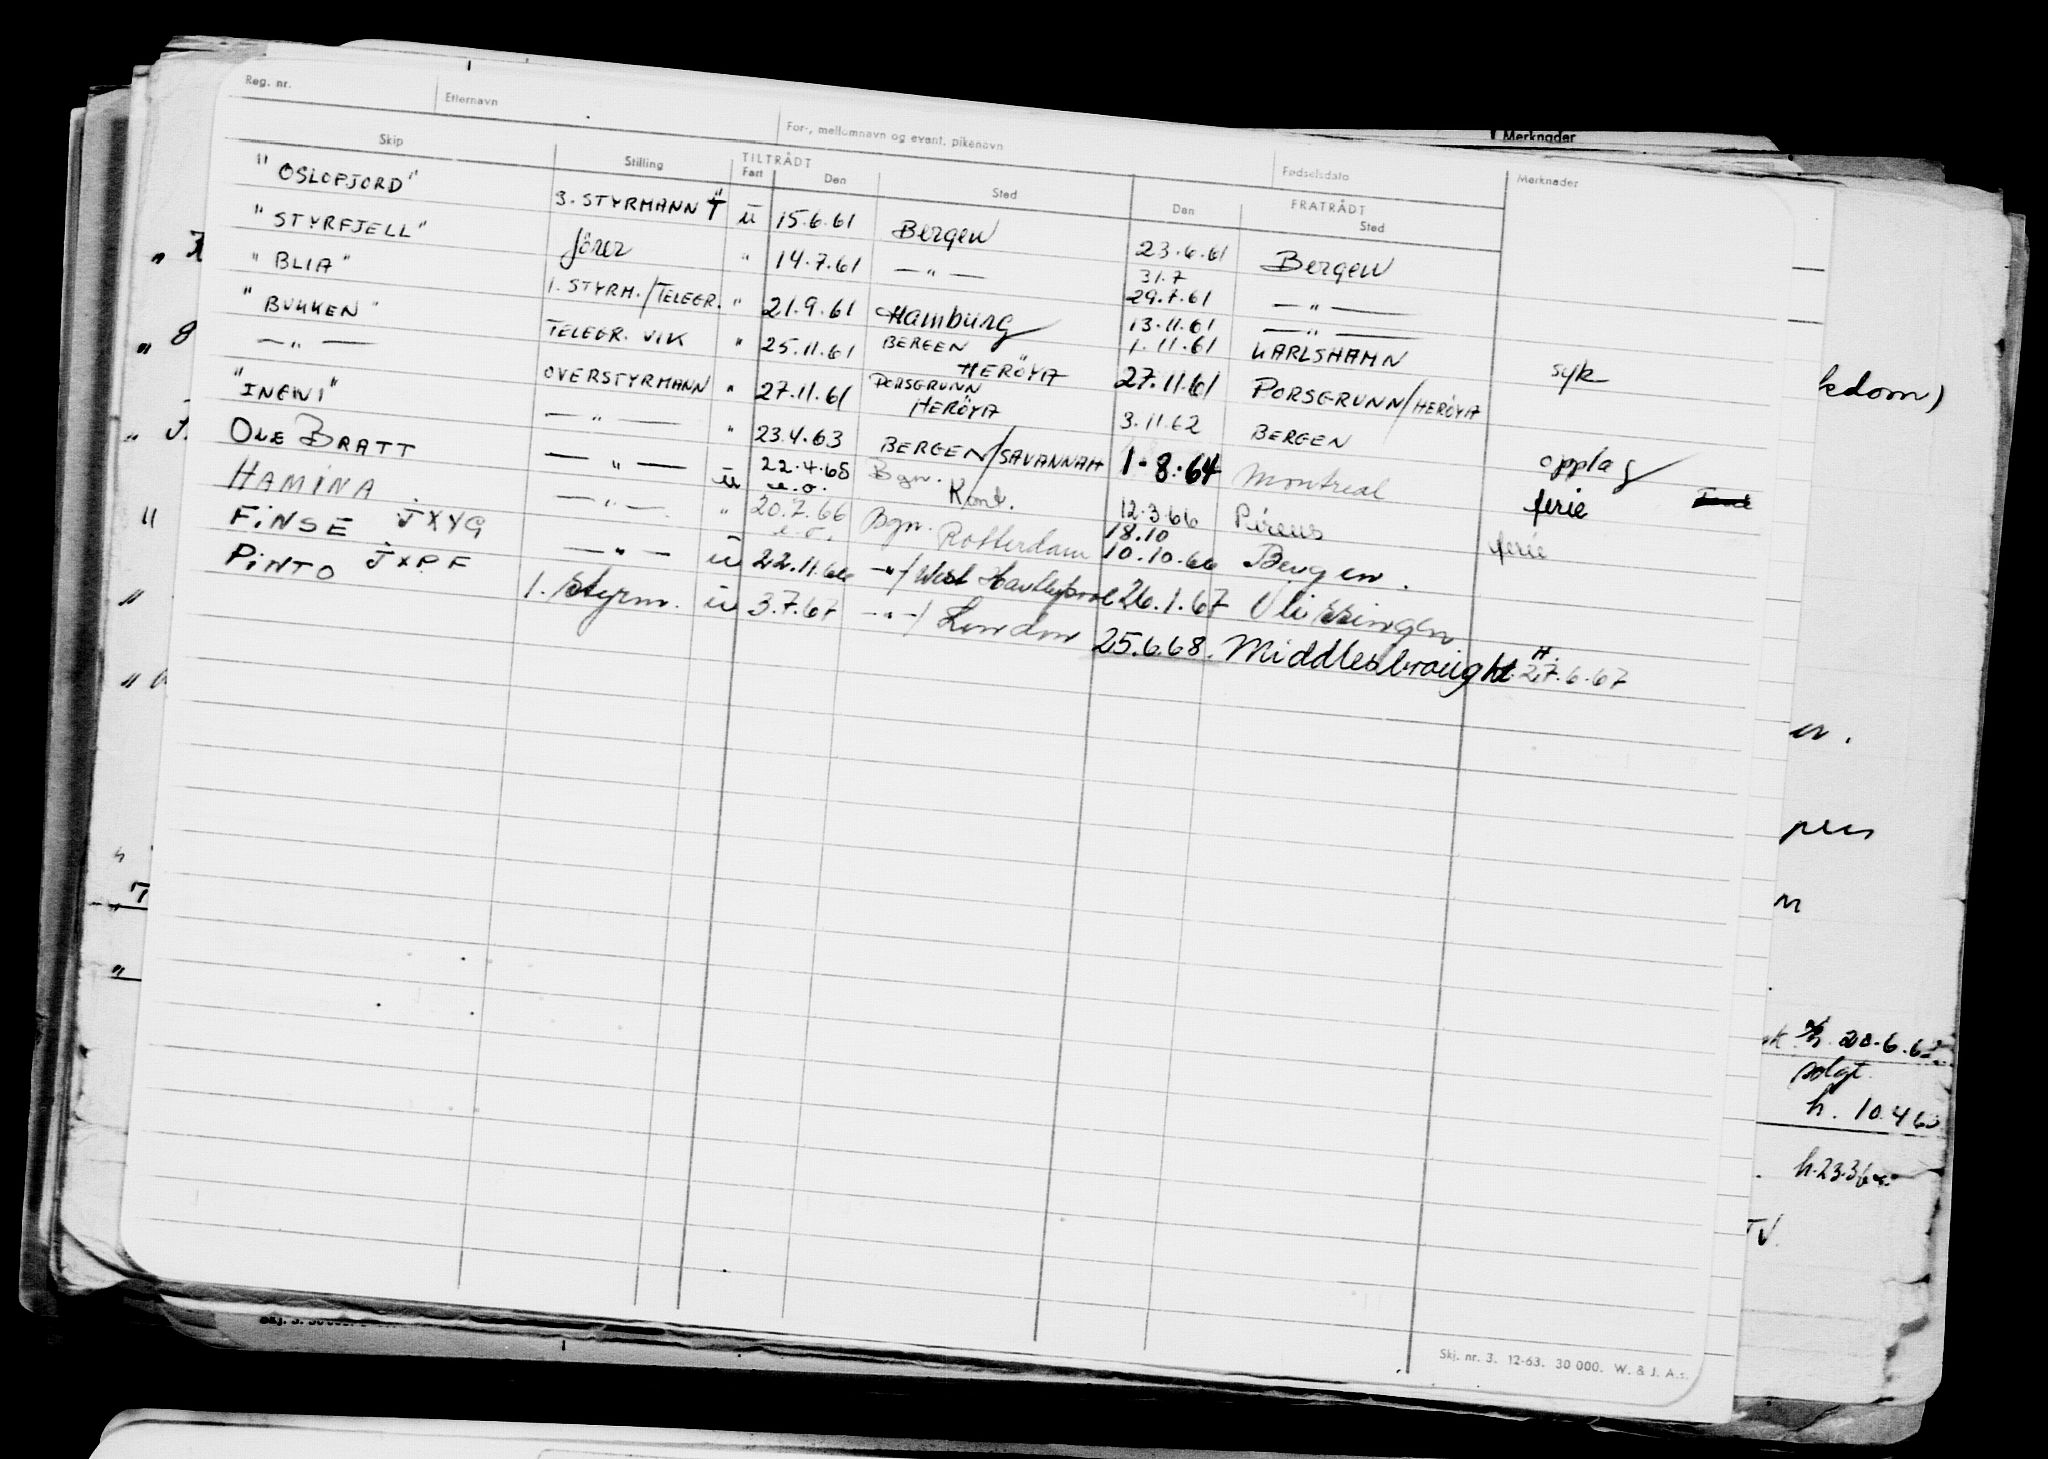 Reg. nr. Etternavn For-, mellomnavn og event. pikenavn Fødselsdato Merknader
Skip Stilling TILTRÅDT FRATRÅDT
Fart Den Sted Den Sted
"OSLOFJORD" 3. STYRMANN ü 15.6.61 Bergen 23.6.61 Bergen
"STYRFJELL" fører " 14.7.61 — " — 31.7 29.7.61 — " —
"BLIA" 1. STYRM./TELEGR. " 21.9.61 Hamburg 13.11.61 — " —
"BUKKEN" TELEGR. VIK " 25.11.61 BERGEN HERÖYA 1.11.61 KARLSHAMN syk
— " — OVERSTYRMANN " 27.11.61 PORSGRUNN HERÖYA 27.11.61 PORSGRUNN/HERÖYA
"INGWI" — " — " 23.4.63 BERGEN/SAVANNAH 3.11.62 BERGEN opplag
OLE BRATT — " — ü 22.4.65 u.o. Bgn. Kont. 1.8.64 Montreal ferie
HAMINA JXYG — " — " 20.7.66 Bgn. Rotterdam 12.3.66 Pireus ferie
FINSE JXPF — " — ü 22.11.66 — " —/West Hartlepool 18.10 10.10.66 Bergen.
PINTO 1. styrm. ü 3.7.67 — " —/London 26.1.67 Vlissingen
25.6.68. Middlesbrough H. 27.6.67
Skj. nr. 3. 12-63. 30 000. W. & J. A.s.
Merknader
kdom)
h. 20.6.62
solgt.
h. 10.4.60
h. 23.3.6